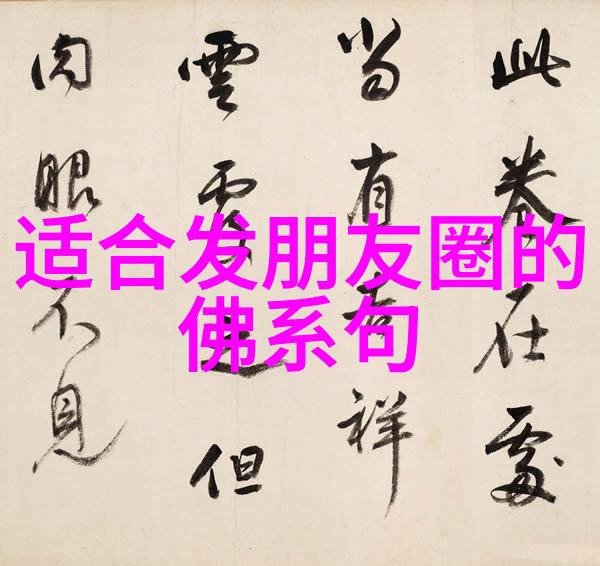 适合发朋友圈的
佛系句
此卷在處
當有吉祥
雲覆之但
肉眼不見